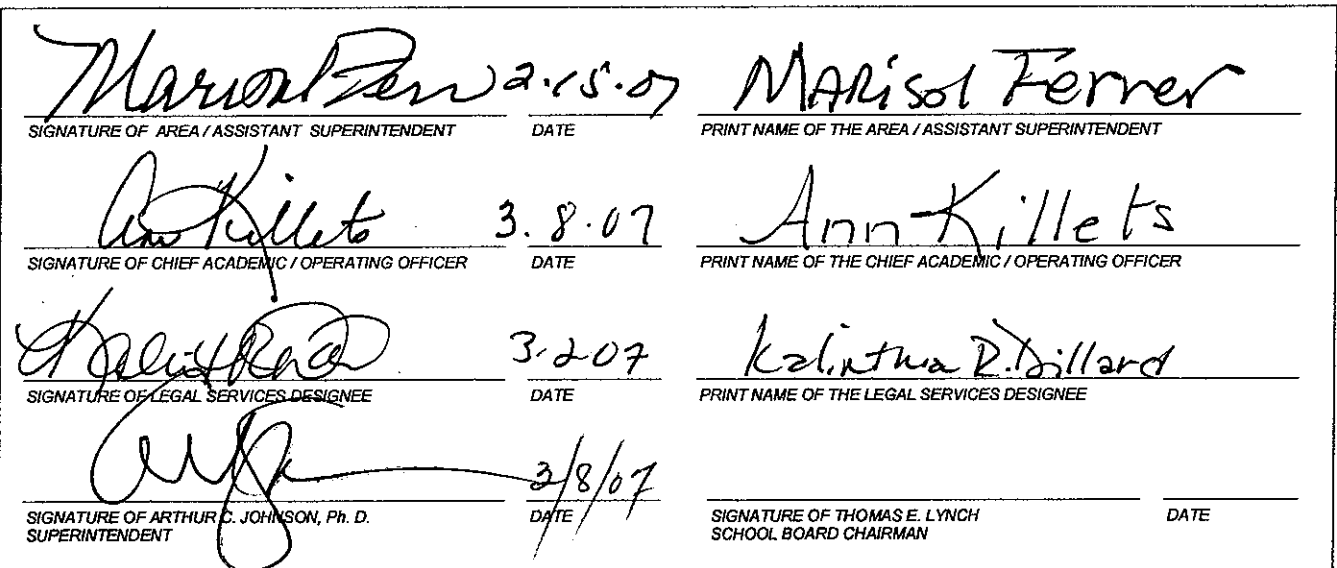 Marisol Ferrer 2.15.07 MARisol Ferrer
SIGNATURE OF AREA / ASSISTANT SUPERINTENDENT DATE PRINT NAME OF THE AREA / ASSISTANT SUPERINTENDENT
Ann Killets 3.8.07 Ann Killets
SIGNATURE OF CHIEF ACADEMIC / OPERATING OFFICER DATE PRINT NAME OF THE CHIEF ACADEMIC / OPERATING OFFICER
3.2.07 Kalinthia R. Dillard
SIGNATURE OF LEGAL SERVICES DESIGNEE DATE PRINT NAME OF THE LEGAL SERVICES DESIGNEE
3/8/07
SIGNATURE OF ARTHUR C. JOHNSON, Ph. D. DATE SIGNATURE OF THOMAS E. LYNCH DATE
SUPERINTENDENT SCHOOL BOARD CHAIRMAN